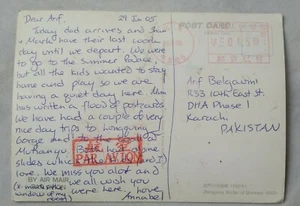 Dear Arif,
29 Jan 05
Today Dad arrives and
Mark have their last work
day until we depart. We were
to go to the Summer Palace,
but all the kids wanted to stay
home and play so we are
having a quiet day here.
has written a flood of postcards.
We have had a couple of very
nice day trips to Longqing
Gorge and to the
Mutianyu
slides which
love. We miss you alot and
we all wish you
were here. Love
Annabel
BY AIR MAIL
PAR AVION
POST CARD
Arif Belgaumi
R33 10th East St.
DHA Phase 1
Karachi
PAKISTAN